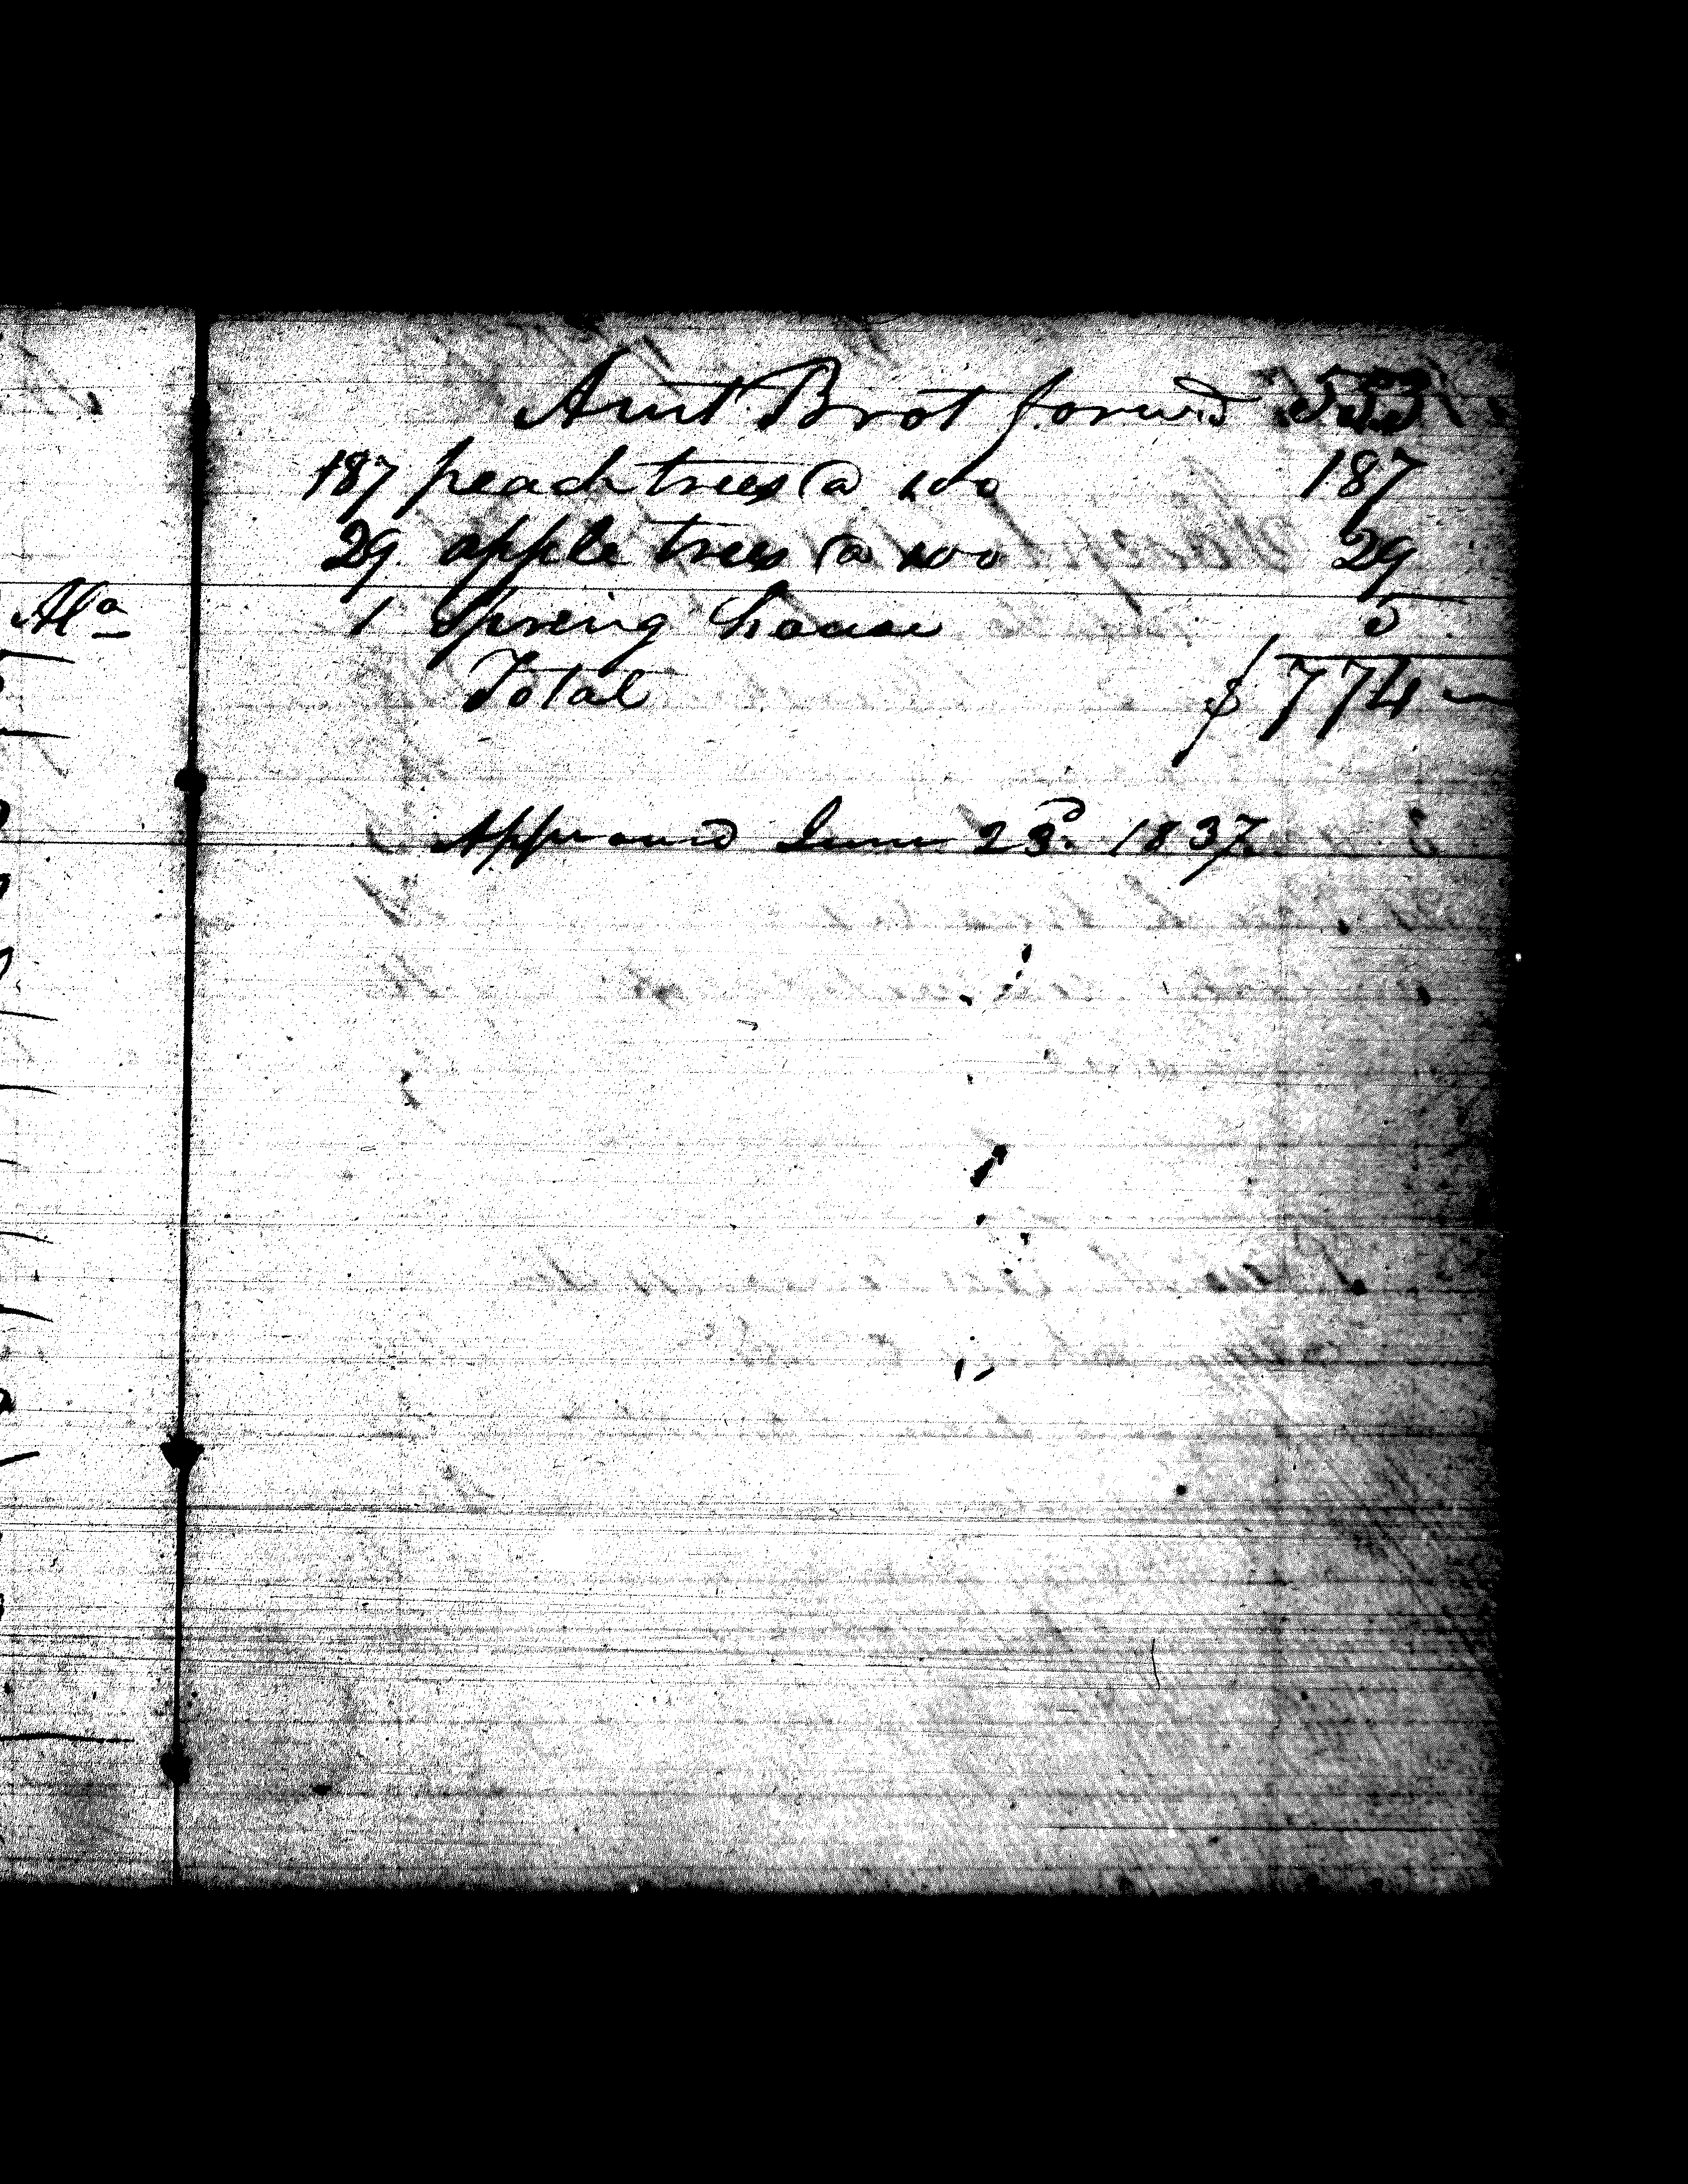 Amt Brot forward 553
187 peach trees @ 100 187
29 apple trees @ 100 29
Ala
1 Spring house 5
Total $ 774
Approved June 23d 1837